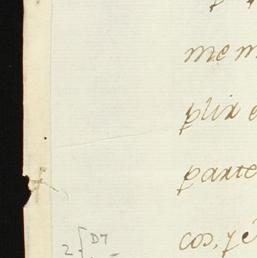 me m
plix e
parte
cos, y é
2 [ D7